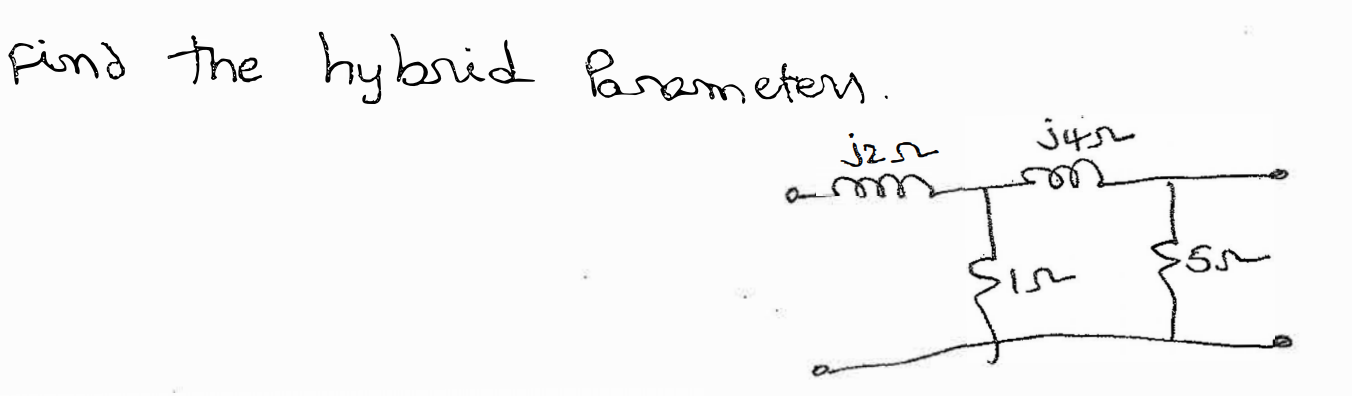 Find the hybrid Parameters.
j2Ω j4Ω
1Ω 5Ω